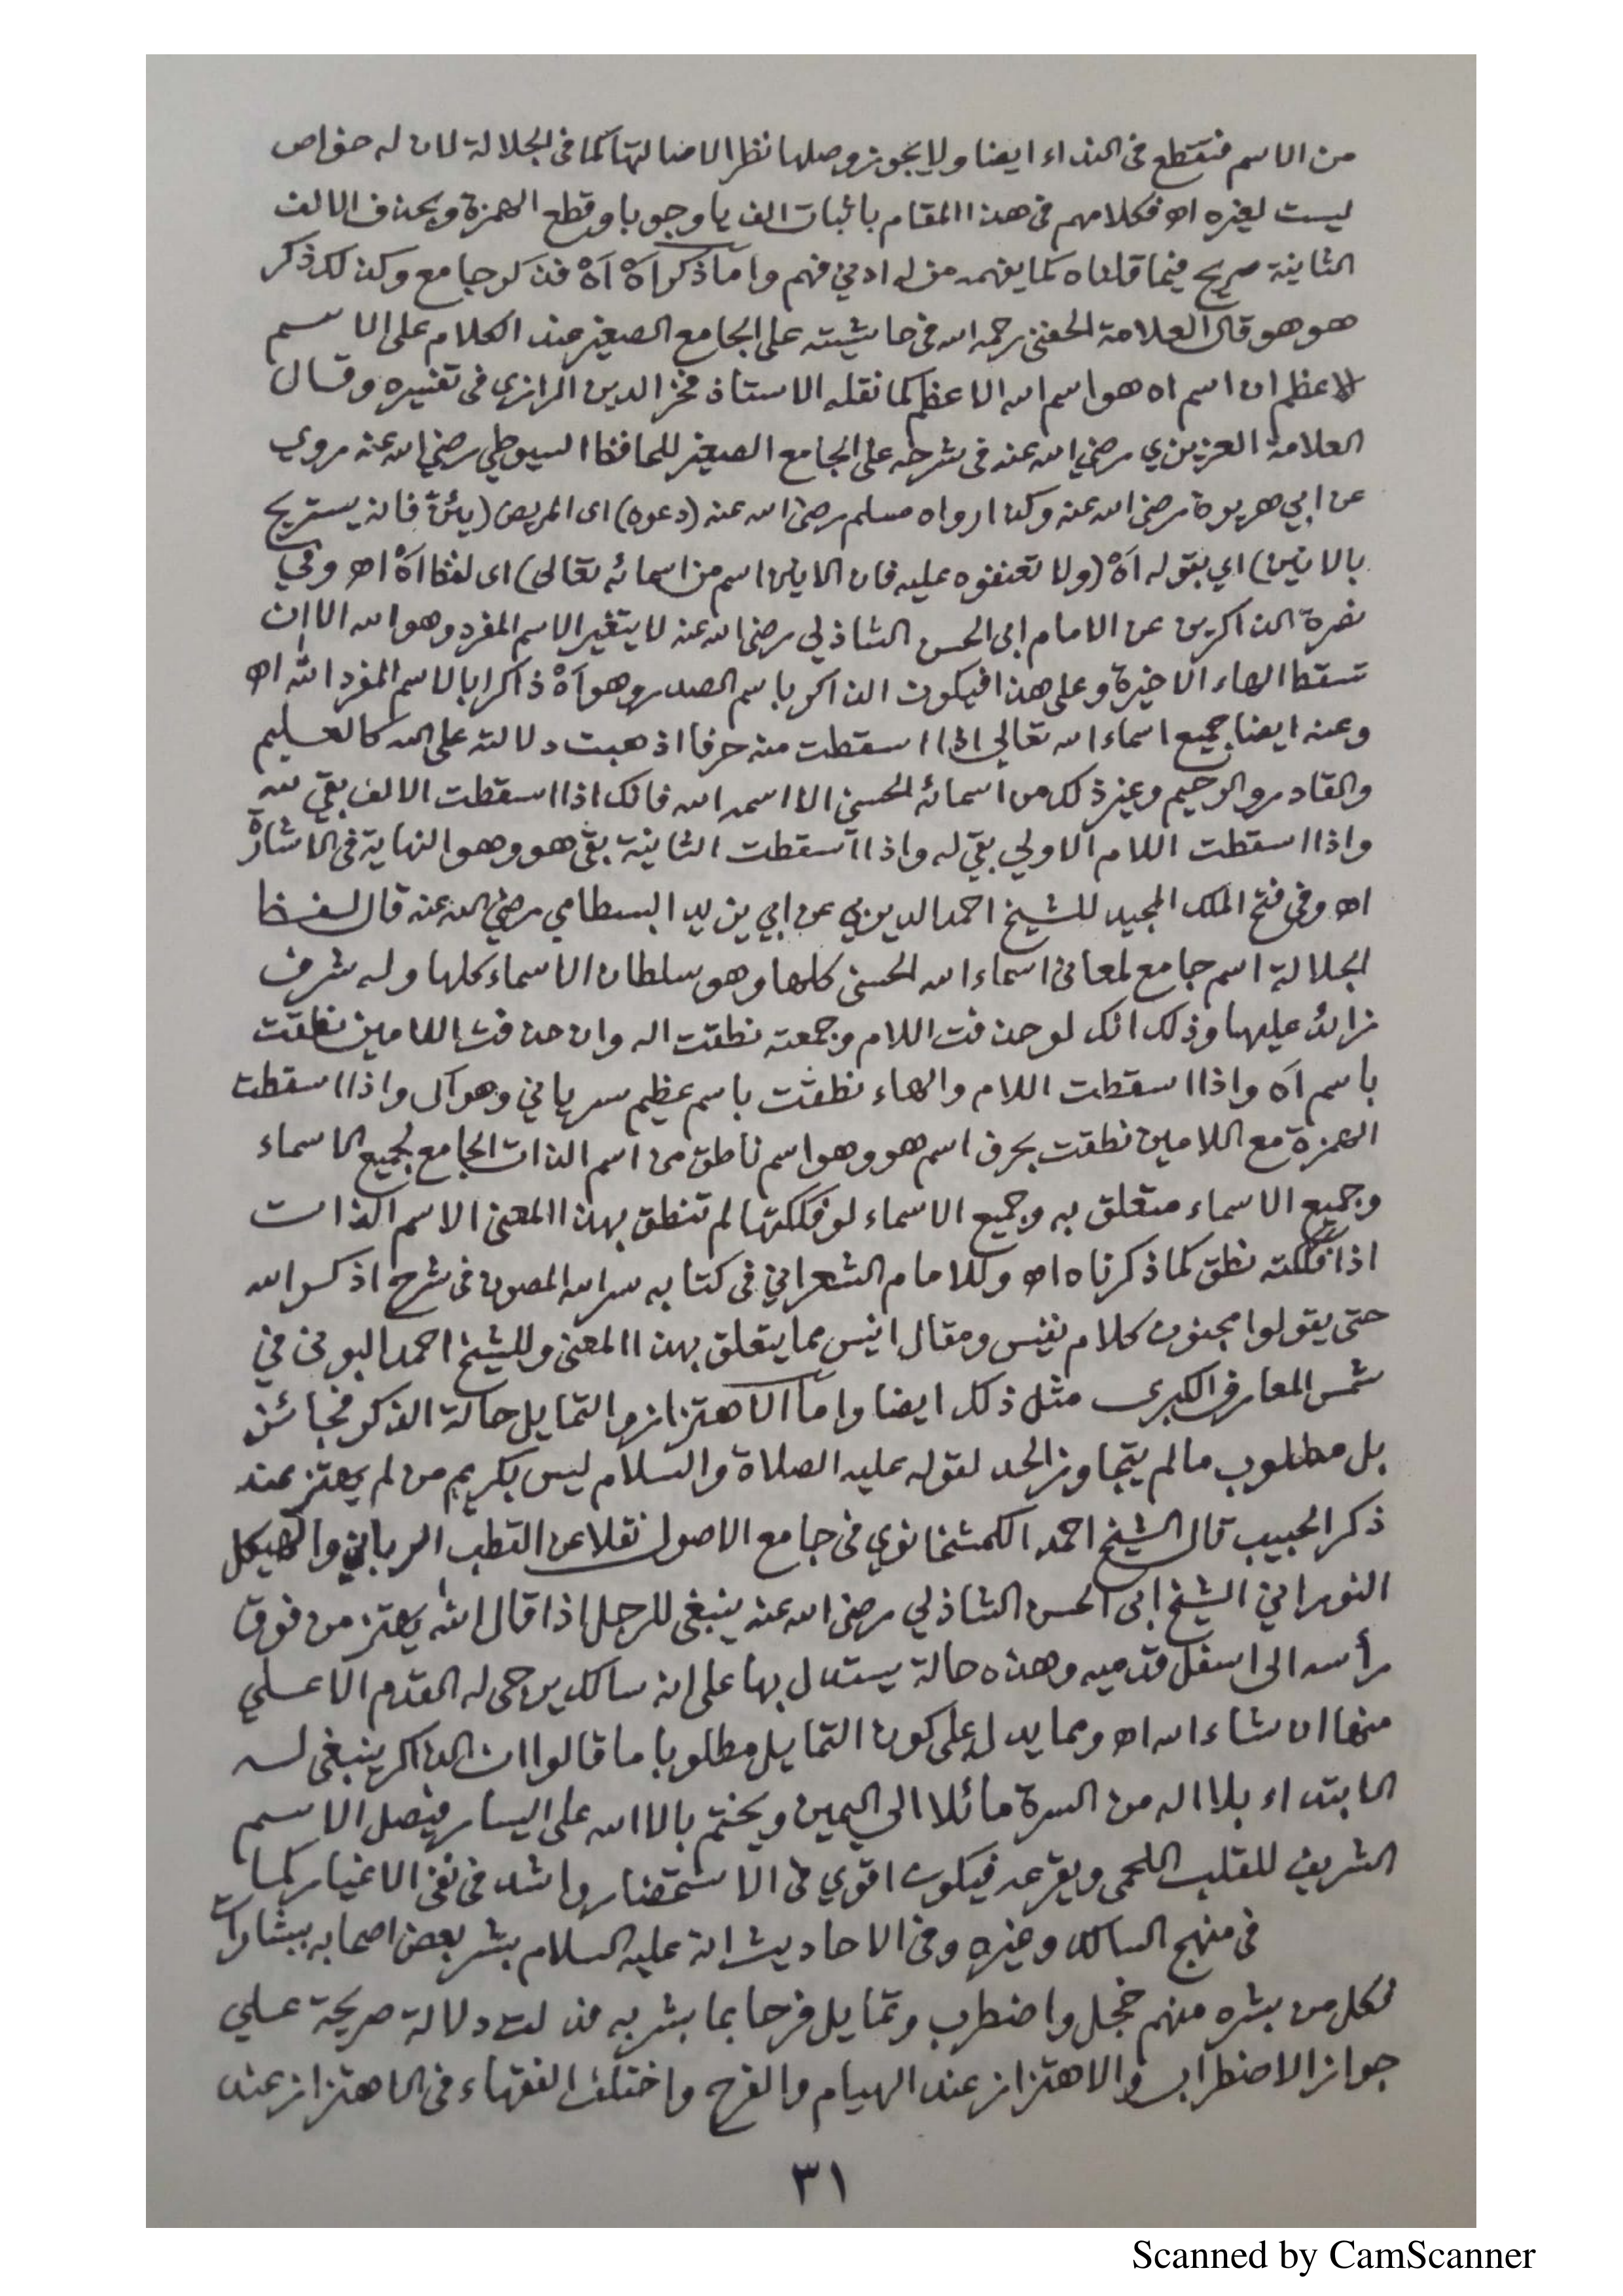 من الاسم فتقطع فى النداء ايضا ولا يجوز وصلها نظرا لاصالتها كما فى الجلالة لان له خواص
ليست لغيره اهـ فكلامهم فى هذا المقام باثبات الف يا وجوبا وقطع الهمزة وبحذف الالف
الثانية صريح فيما قلناه كما يفهمه من له ادني فهم وامآ ذكر آهْ آهْ فذكر جامع وكذلك ذكر
هو هو قال العلامة الحفنى رحمه الله فى حاشيته على الجامع الصغير عند الكلام على الاسم
الاعظم ان اسم اه هو اسم الله الاعظم كما نقله الاستاذ فخر الدين الرازى فى تفسيره وقال
العلامة العزيزي رضي الله عنه فى شرحه على الجامع الصغير للحافظ السيوطي رضي الله عنه روي
عن ابي هريرة رضى الله عنه وكذا رواه مسلم رضى الله عنه (دعوه) اى المريض (يئنّ فانه يستريح
بالانين) اي بقوله آهْ (ولا تعنفوه عليه فان الانين اسم من اسمائه تعالى) اى لفظ آهْ اهـ وفي
نصرة الذاكرين عن الامام ابى الحسن الشاذلي رضى الله عنه لا يتغير الاسم المفرد وهو الله الا ان
تسقط الهاء الاخيرة وعلى هذا فيكون الذاكر باسم الصدر وهو آهْ ذاكرا بالاسم المفرد الله اهـ
وعنه ايضا جميع اسماء الله تعالى اذا اسقطت منه حرفا اذهبت دلالته على الله كالعليم
والقادر والرحيم وغير ذلك من اسمائه الحسنى الا اسمه الله فانك اذا اسقطت الالف بقي لله
واذا اسقطت اللام الاولي بقي له واذا اسقطت الثانية بقى هو وهو النهاية فى الاشارة
اهـ وفى فتح الملك المجيد للشيخ احمد الديربي عن ابي يزيد البسطامي رضي الله عنه قال لفظ
الجلالة اسم جامع لمعانى اسماء الله الحسنى كلها وهو سلطان الاسماء كلها وله شرف
زائد عليها وذلك انك لو حذفت اللام وجمعته نطقت اله وان حذفت اللامين نطقت
باسم آه واذا اسقطت اللام والهاء نطقت باسم عظيم سرياني وهو آل واذا اسقطت
الهمزة مع اللامين نطقت بحرف اسم هو وهو اسم ناطق من اسم الذات الجامع لجميع الاسماء
وجميع الاسماء متعلق به وجميع الاسماء لو فككتها لم تنطق بهذا المعنى الا سم الذات
اذا فككته نطق كما ذكرناه اهـ وللامام الشعراني فى كتابه سر الله المصون فى شرح اذكروا الله
حتى يقولوا مجنون كلام نفيس ومقال انيس مما يتعلق بهذا المعنى وللشيخ احمد البونى في
شمس المعارف الكبرى مثل ذلك ايضا وامآ الاهتزاز والتمايل حالة الذكر فجائز
بل مطلوب مالم يتجاوز الحد لقوله عليه الصلاة والسلام ليس بكريم من لم يهتز عند
ذكر الحبيب قال الشيخ احمد الكمشخانوي فى جامع الاصول نقلا عن القطب الرباني والهيكل
النوراني الشيخ ابى الحسن الشاذلي رضى الله عنه ينبغى للرجل اذا قال الله يهتز من فوق
رأسه الى اسفل قدميه وهذه حالة يستدل بها على انه سالك يرجى له القدم الاعلي
منها ان شاء الله اهـ ومما يدل على كون التمايل مطلوبا ما قالوا ان الذاكر ينبغى له
الابتداء بلا اله من السرة مائلا الي اليمين ويختم بالا الله على اليسار فيتصل الاسم
الشريف للقلب اللحمى ويقرعه فيكون اقوي فى الاستحضار واشد فى نفى الاغيار كما
فى منهج السالك وغيره وفى الاحاديث انه عليه السلام بشر بعض اصحابه ببشارات
فكل من بشره منهم خجل واضطرب وتمايل فرحا بما بشر به فدلت دلالة صريحة علي
جواز الاضطراب والاهتزاز عند الهيام والفرح واختلف الفقهاء فى الاهتزاز عند
٣١
Scanned by CamScanner